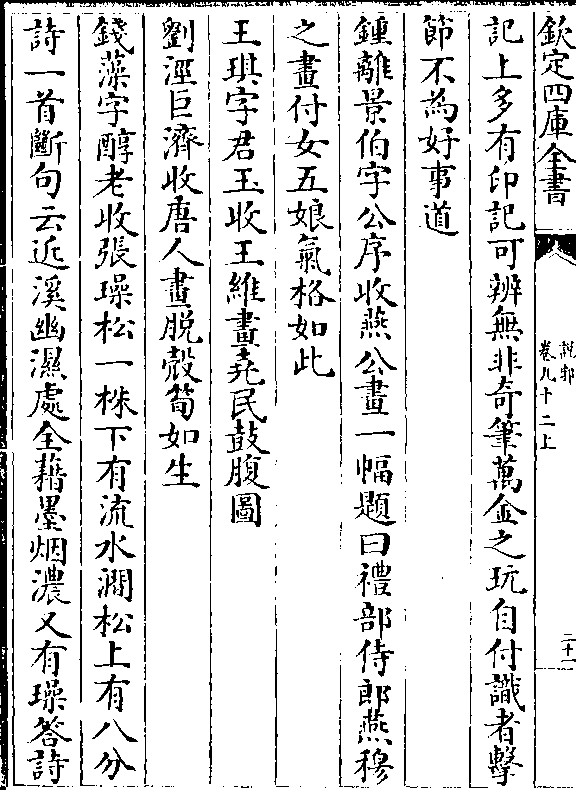 欽定四庫全書
說郛
卷九十二上
二十一
記上多有印記可辨無非奇筆萬金之玩自付識者擊
節不為好事道
鍾離景伯字公序收燕公畫一幅題曰禮部侍郎燕穆
之畫付女五娘氣格如此
王琪字君玉收王維畫堯民鼓腹圖
劉涇巨濟收唐人畫脱殻筍如生
錢藻字醇老收張璪松一株下有流水澗松上有八分
詩一首斷句云近溪幽濕處全藉墨烟濃又有璪答詩